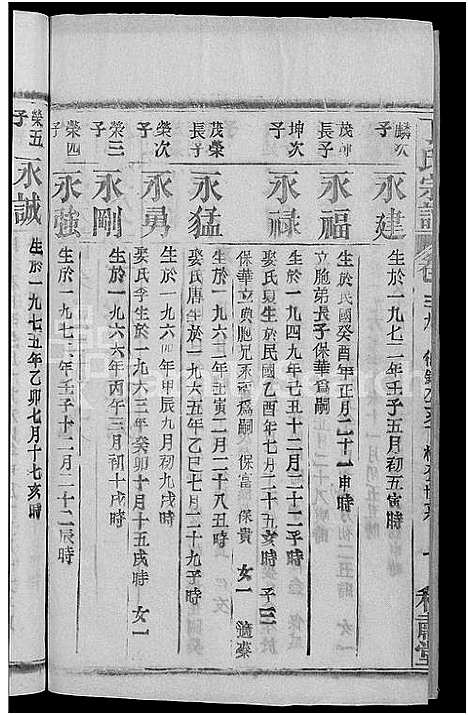 丁氏宗譜
麟次子
永建
生於一九七二年壬子五月初五寅時
茂坤長子
永福
生於民國癸酉年正月二十一申時
立胞弟長子保華爲嗣
坤次子
永祿
生於一九四九年己丑十二月二十二子時
娶氏夏生於民國乙酉年三月二十五亥時 子三
保華立與胞兄永福爲嗣 保富 保貴 女一 適秦
茂榮長子
永猛
生於一九六二年壬寅二月二十八丑時
娶氏唐生於一九六五年乙巳七月二十九子時
榮次子
永勇
生於一九六四年甲辰九月初九戌時
娶氏李生於一九六三年癸卯十月十五戌時 女一
榮三子
永剛
生於一九六六年丙午三月初十戌時
榮四子
永強
生於一九七二年壬子十二月二十二辰時
榮五子
永誠
生於一九七五年乙卯七月十七亥時